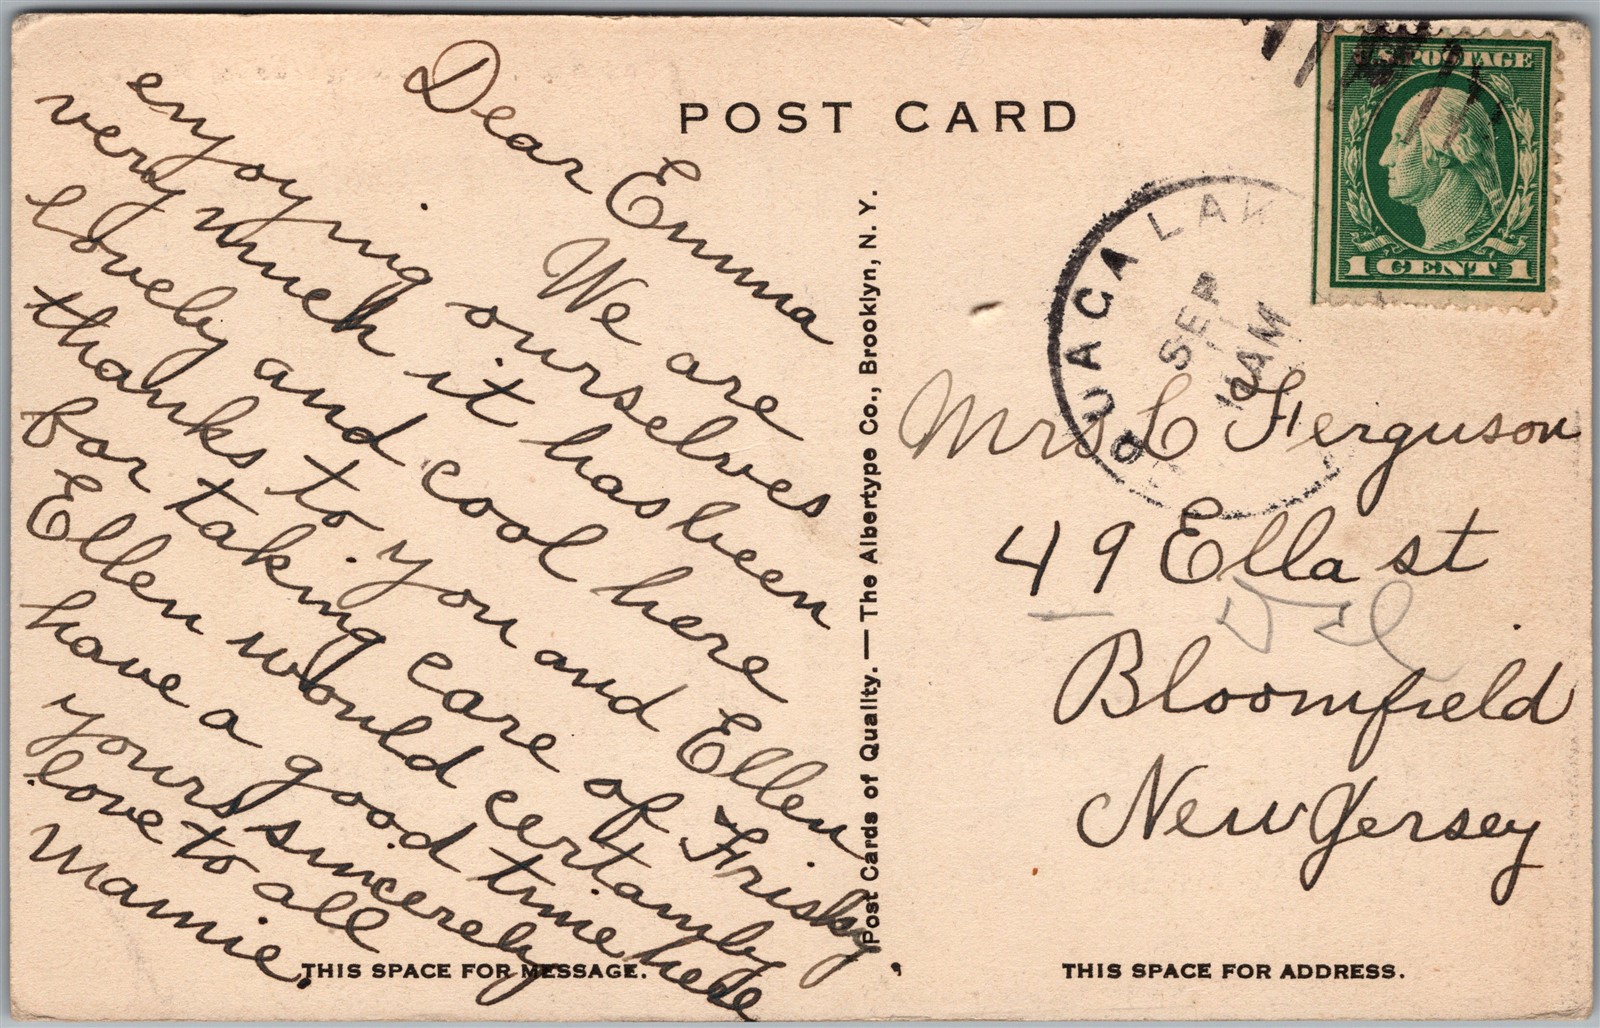 POST CARD
U.S. POSTAGE
1 CENT 1
LAK
SEP
AM
Dear Emma
We are
enjoying ourselves
very much it has been
lovely and cool here
thanks to you and Ellen
for taking care of Frisky
Ellen would certainly
have a good time here
yours sincerely
love to all
Mamie.
Post Cards of Quality. — The Albertype Co., Brooklyn, N. Y.
Mrs L Ferguson
49 Ella st
Bloomfield
New Jersey
THIS SPACE FOR MESSAGE.
THIS SPACE FOR ADDRESS.